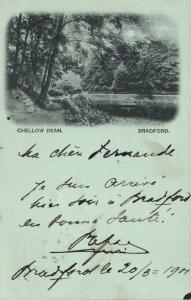 CHELLOW DEAN. BRADFORD.
Ma chère Fernande
Je suis arrivé
hier soir à Bradford
en bonne santé.
Papa
Bradford le 20/3-1901